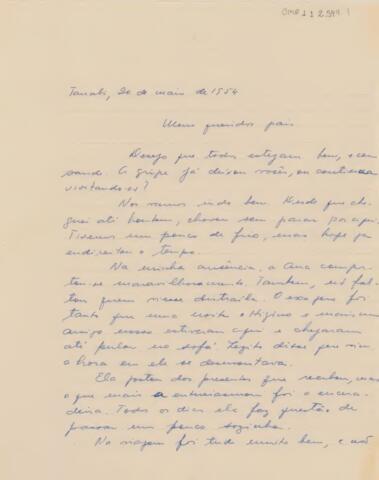 Tanabi, 20 de maio de 1954
Meus queridos pais
Desejo que todos estejam bem, e com
saúde. A gripe já deixou vocês, ou continua
visitando-os?
Nós vamos indo bem. Desde que che-
guei até hontem, choveu sem parar por aqui.
Tivemos um pouco de frio, mas hoje já
endireitou o tempo.
Na minha ausência, a Ana compor-
tou-se maravilhosamente. Tambem, só fal-
tou quem
tanto que uma noite o Higino e mais um
amigo nosso estiveram aqui e chegaram
até pular no sofá.
a hora em ele se desmontava.
Ela gostou dos presentes que recebeu, mas
o que mais a entusiasmou foi a
Todos os dias ela faz questão de
passear um pouco sozinha.
Na viagem foi tudo muito bem, e nós